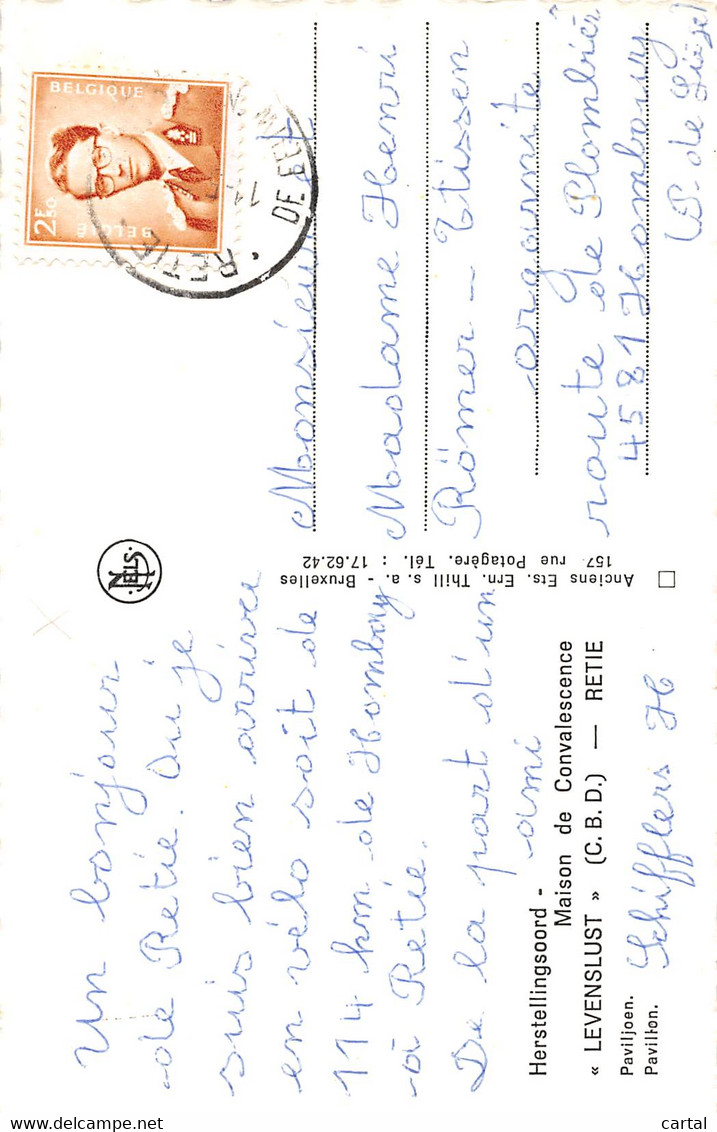 Un bonjour
de Retie. Ou je
suis bien arrivé
en vélo soit de
114 km de Hombourg
à Retie.
De la part d'un
ami
Schifflers H
Herstellingsoord -
Maison de Convalescence
« LEVENSLUST » (C.B.D.) — RETIE
Paviljoen.
Pavillon.
NELS
Anciens Ets. Ern. Thill s. a. - Bruxelles
157, rue Potagère. Tél. : 17.62.42
BELGIQUE
2F50
BELGIË
RETIE
Monsieur et
Madame Henri
Römer – Tissen
route de Plombièr
4581 Hombourg
(P. de Liège)
© delcampe.net
cartal